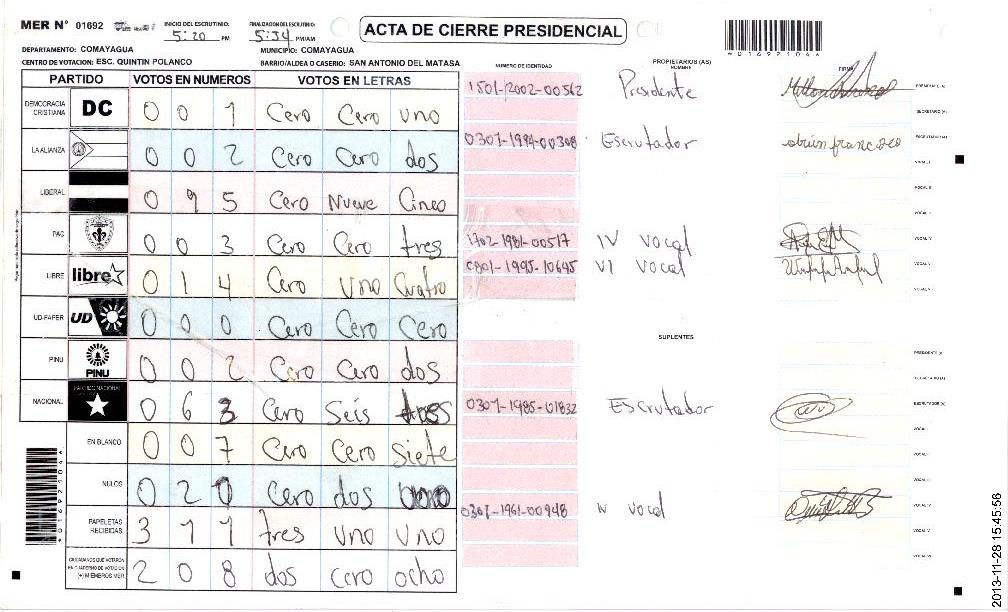 MER N° 01692
INICIO DEL ESCRUTINIO: 5:20 PM
FINALIZACION DEL ESCRUTINIO: 5:34 PM/AM
ACTA DE CIERRE PRESIDENCIAL
DEPARTAMENTO: COMAYAGUA
MUNICIPIO: COMAYAGUA
CENTRO DE VOTACION: ESC. QUINTIN POLANCO
BARRIO/ALDEA O CASERIO: SAN ANTONIO DEL MATASA
PARTIDO VOTOS EN NUMEROS VOTOS EN LETRAS
NUMERO DE IDENTIDAD
PROPIETARIOS (AS)
NOMBRE
FIRMA
DEMOCRACIA CRISTIANA DC 0 0 1 Cero Cero uno
LA ALIANZA 0 0 2 Cero Cero dos
LIBERAL 0 9 5 Cero Nueve Cinco
PAC 0 0 3 Cero Cero tres
LIBRE libre 0 1 4 Cero uno Cuatro
UD-FAPER UD 0 0 0 Cero Cero Cero
PINU PINU 0 0 2 Cero Cero dos
NACIONAL PARTIDO NACIONAL 0 6 3 Cero Seis tres
EN BLANCO 0 0 7 Cero Cero Siete
NULOS 0 2 Cero dos
PAPELETAS RECIBIDAS 3 1 1 tres uno uno
CIUDADANOS QUE VOTARON EN CUADERNO DE VOTACION (+) MIEMBROS MER 2 0 8 dos cero ocho
1501-2002-00562 Presidente
0307-1994-00308 Escrutador
1702-1981-00517 IV Vocal
0801-1995-10695 VI Vocal
SUPLENTES
0307-1985-01832 Escrutador
0307-1961-00948 IV Vocal
*01692104*
2013-11-28 15:45:56